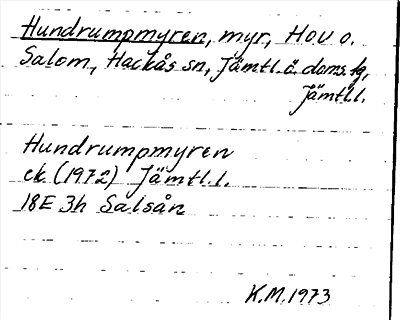 Hundrumpmyren, myr, Hov o.
Salom, Hackås sn, Jämtl. ö. doms. hg,
Jämtl.l.
Hundrumpmyren
ek (1972) Jämtl.l.
18E 3h Salsån
K.M.1973